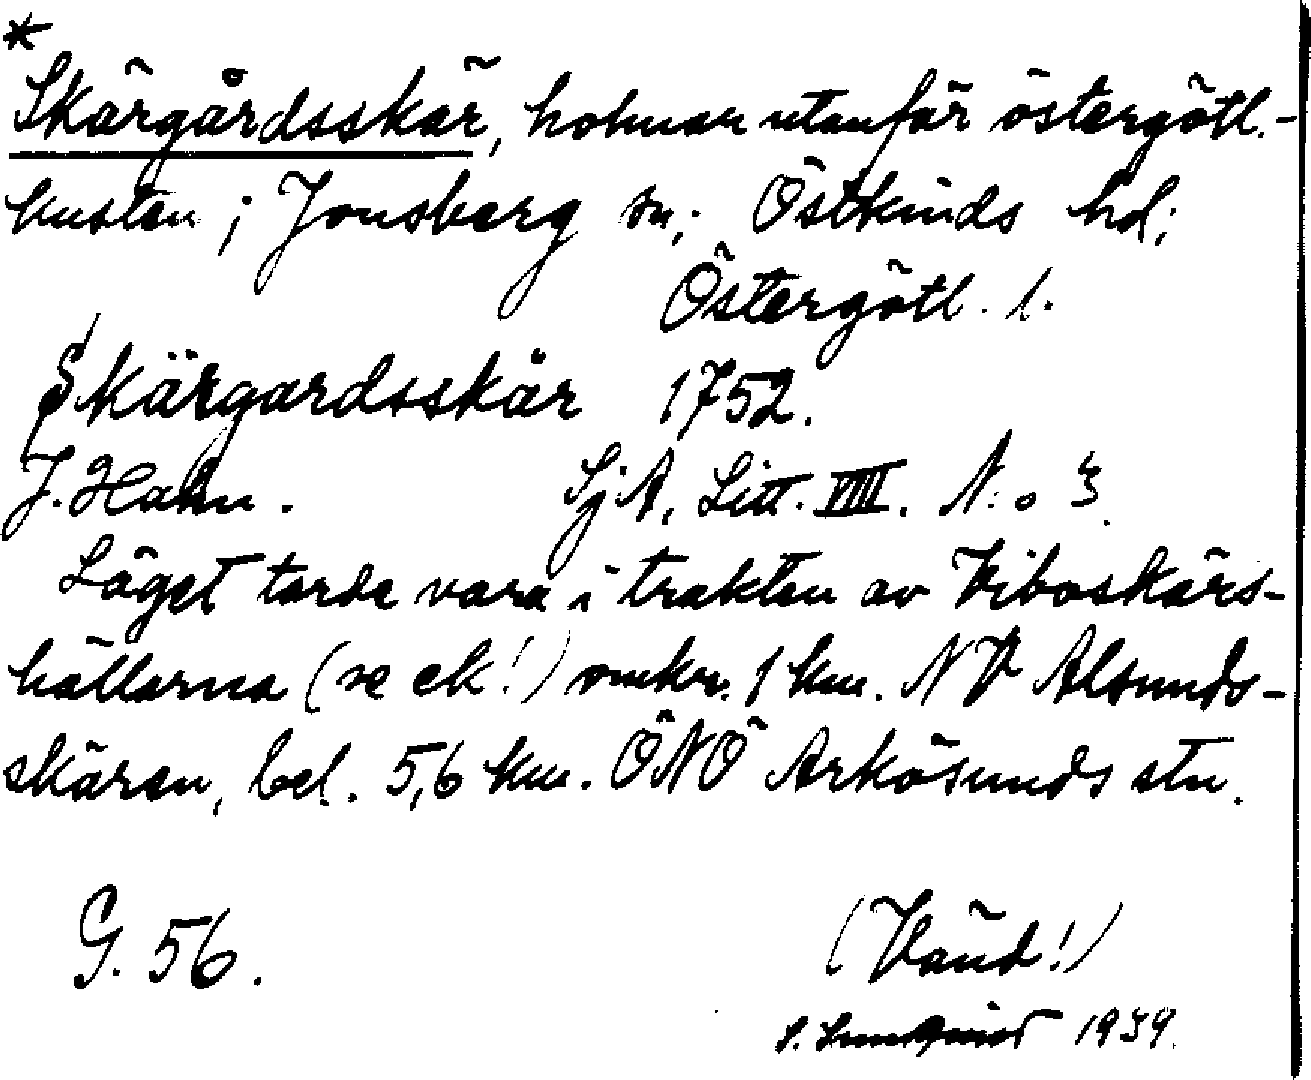 *
Skärgårdsskär, holmar utanför östergötl.-
kusten; Jonsberg sn; Östkinds hd;
Östergötl. l.
Skärgardsskär 1752.
J. Hahn. SjA, Litt. VIII. N:o 3.
Läget torde vara i trakten av Viboskärs-
hällarna (se ek!) omkr. 1 km. NV Alsunds-
skären, bel. 5,6 km. ÖNÖ Arkösunds stn.
G. 56. (Vänd!)
1939.